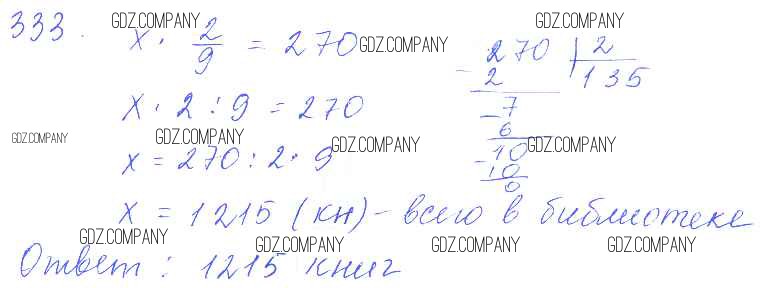 333. x · 2/9 = 270
x · 2 : 9 = 270
x = 270 : 2 · 9
x = 1215 (кн) - всего в библиотеке
Ответ: 1215 книг
270 | 2
- 2 135
- 7
6
- 10
10
0
GDZ.COMPANY
GDZ.COMPANY
GDZ.COMPANY
GDZ.COMPANY
GDZ.COMPANY
GDZ.COMPANY
GDZ.COMPANY
GDZ.COMPANY
GDZ.COMPANY
GDZ.COMPANY
GDZ.COMPANY